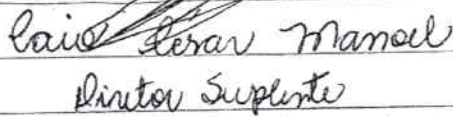 Caio Cesar Manoel
Diretor Suplente